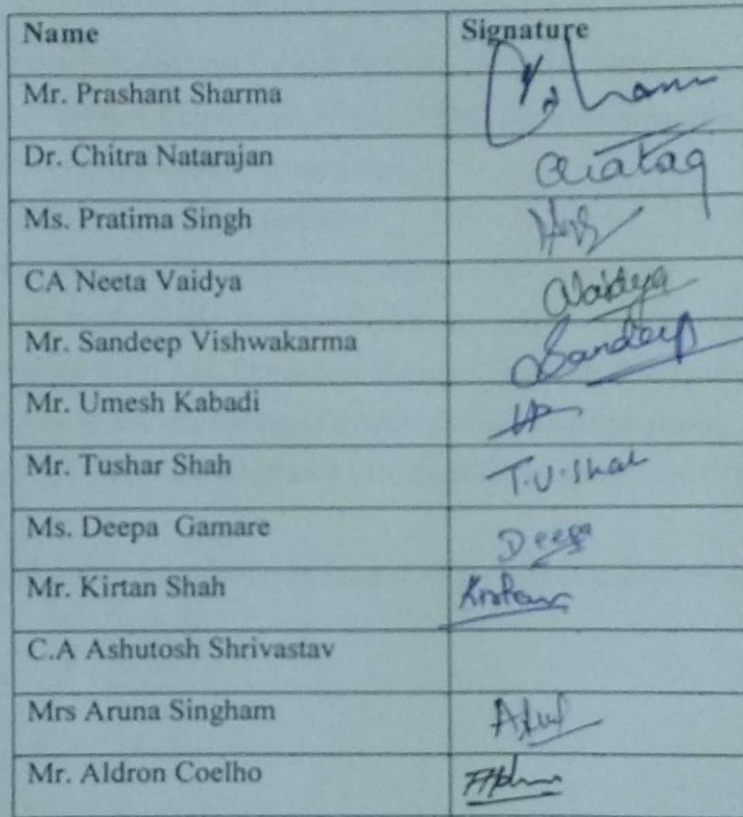 Name Signature
Mr. Prashant Sharma
Dr. Chitra Natarajan
Ms. Pratima Singh
CA Neeta Vaidya Vaidya
Mr. Sandeep Vishwakarma Sandeep
Mr. Umesh Kabadi
Mr. Tushar Shah T.U.Shah
Ms. Deepa Gamare Deepa
Mr. Kirtan Shah
C.A Ashutosh Shrivastav
Mrs Aruna Singham
Mr. Aldron Coelho